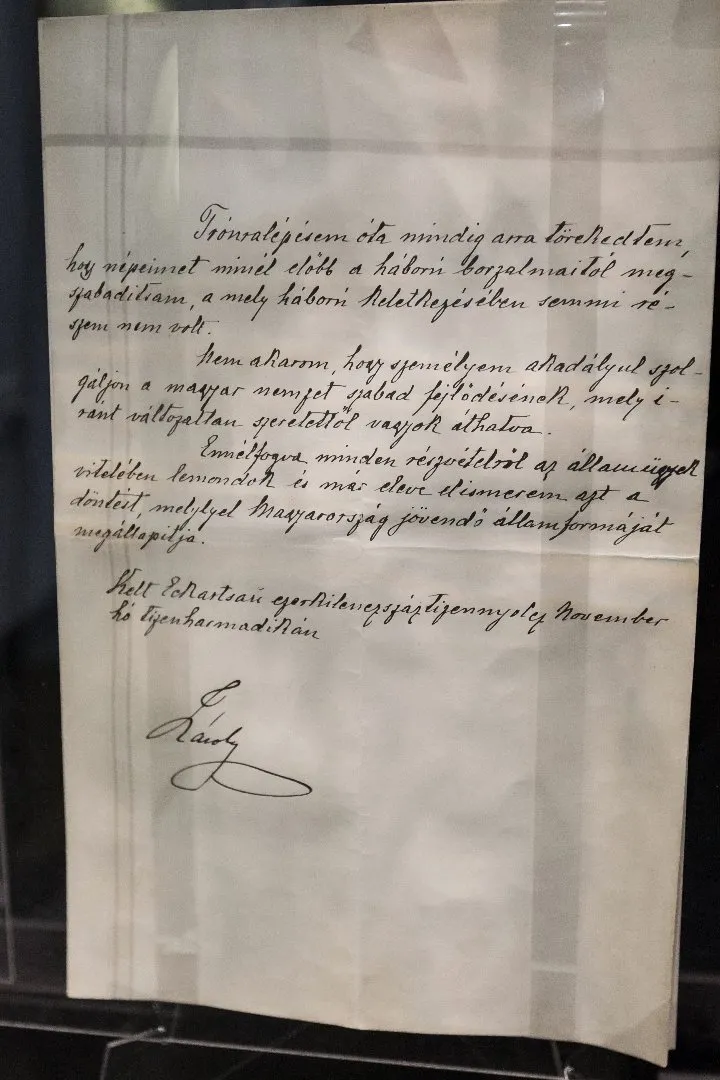 Trónralépésem óta mindig arra törekedtem,
hogy népeimet minél előbb a háború borzalmaitól meg-
szabaditsam, a mely háború keletkezésében semmi ré-
szem nem volt.
Nem akarom, hogy személyem akadályul szol-
gáljon a magyar nemzet szabad fejlődésének, mely i-
ránt változatlan szeretettől vagyok áthatva.
Ennélfogva minden részvételről az államügyek
vitelében lemondok és már eleve elismerem azt a
döntést, melylyel Magyarország jövendő államformáját
megállapitja.
Kelt Eckartsau ezerkilencszáztizennyolcz November
hó tizenharmadikán
Károly